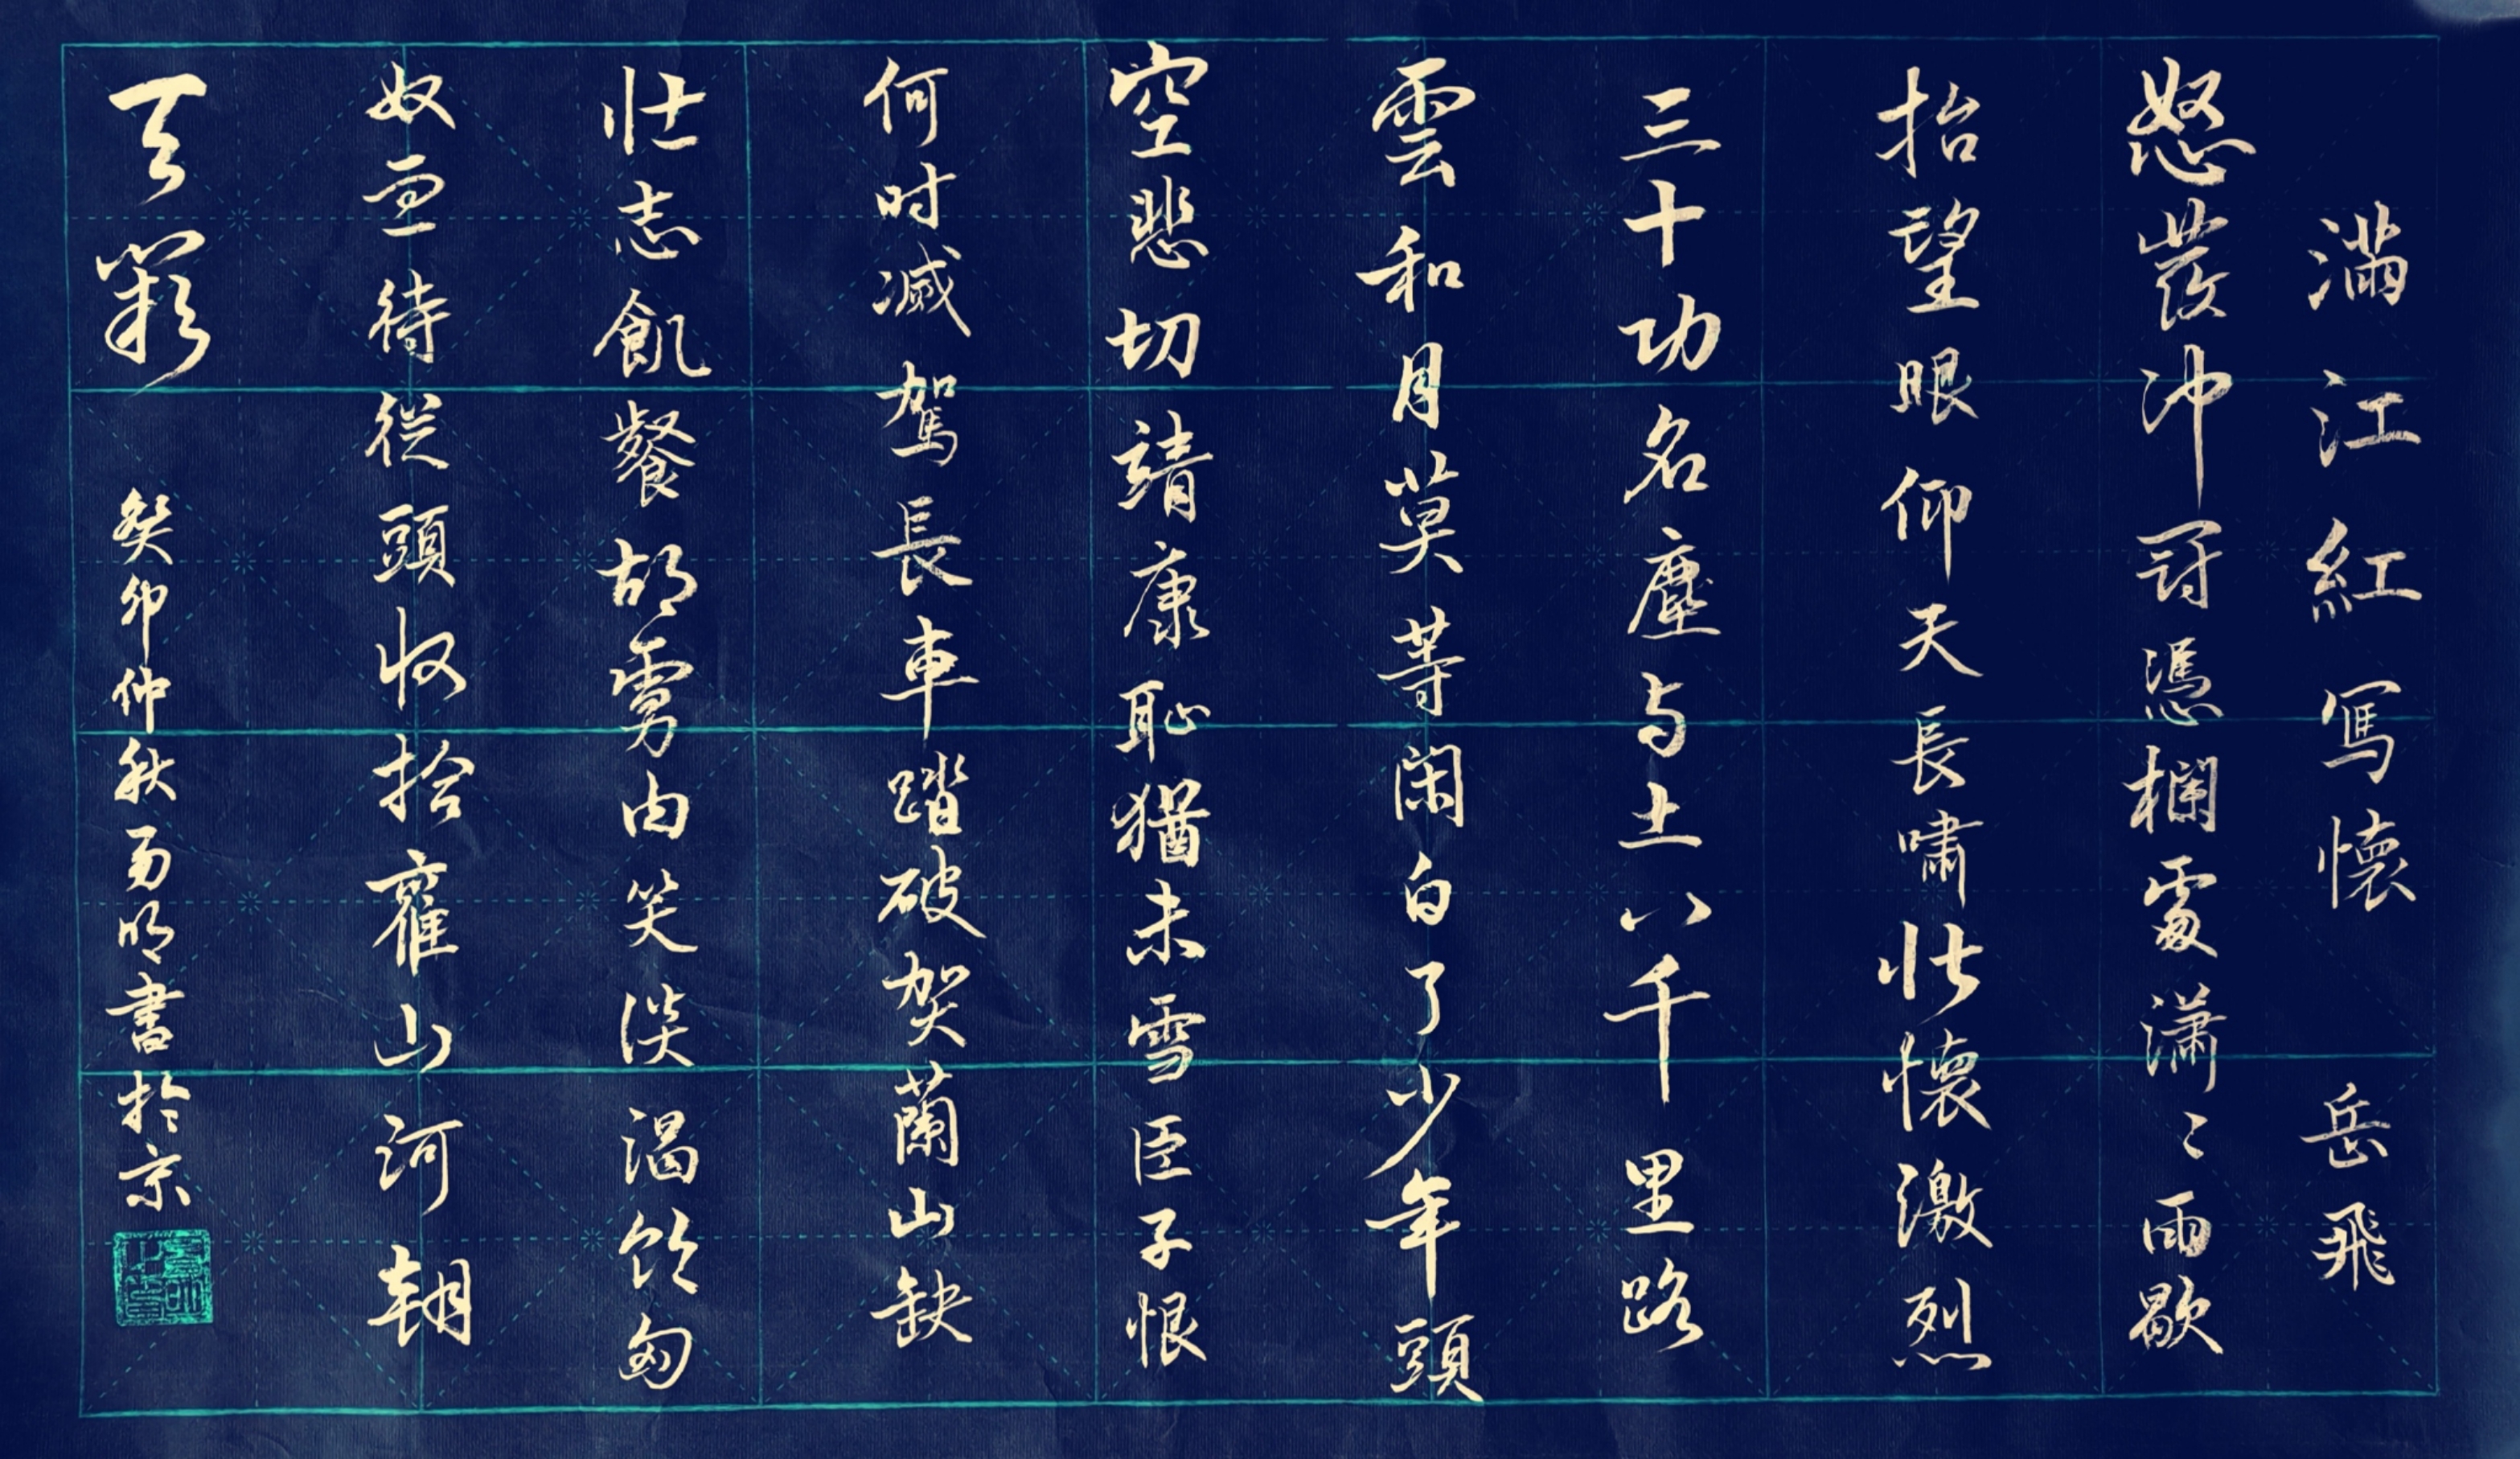 滿江紅寫懷 岳飛
怒發沖冠憑欄處瀟〻雨歇
抬望眼仰天長嘯壯懷激烈
三十功名塵与土八千里路
雲和月莫等闲白了少年頭
空悲切靖康恥猶未雪臣子恨
何时滅駕長車踏破贺蘭山缺
壮志飢餐胡虜肉笑談渴飲匈
奴血待從頭收拾舊山河朝
天闕 癸卯仲秋易明書於京